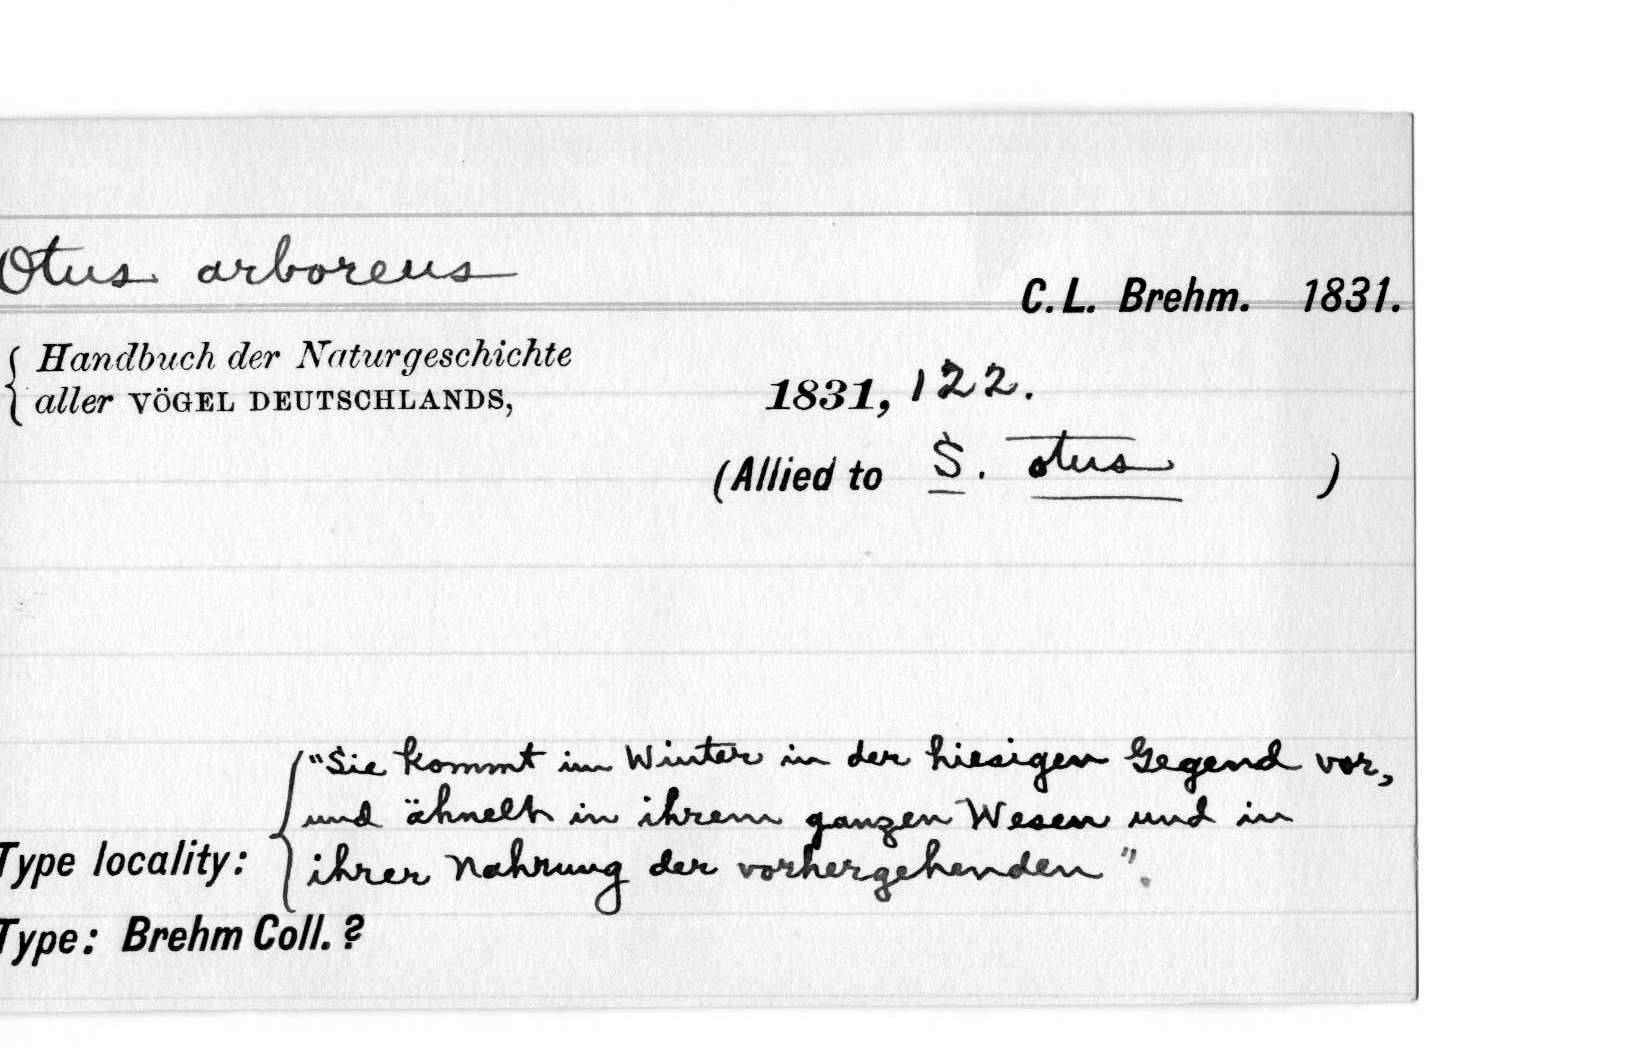 Otus arboreus
C. L. Brehm. 1831.
Handbuch der Naturgeschichte
aller VÖGEL DEUTSCHLANDS, 1831, 122.
(Allied to S. otus )
"Sie kommt im Winter in der hiesigen Gegend vor,
und ähnelt in ihrem ganzen Wesen und in
Type locality: ihrer Nahrung der vorhergehenden".
Type: Brehm Coll. ?